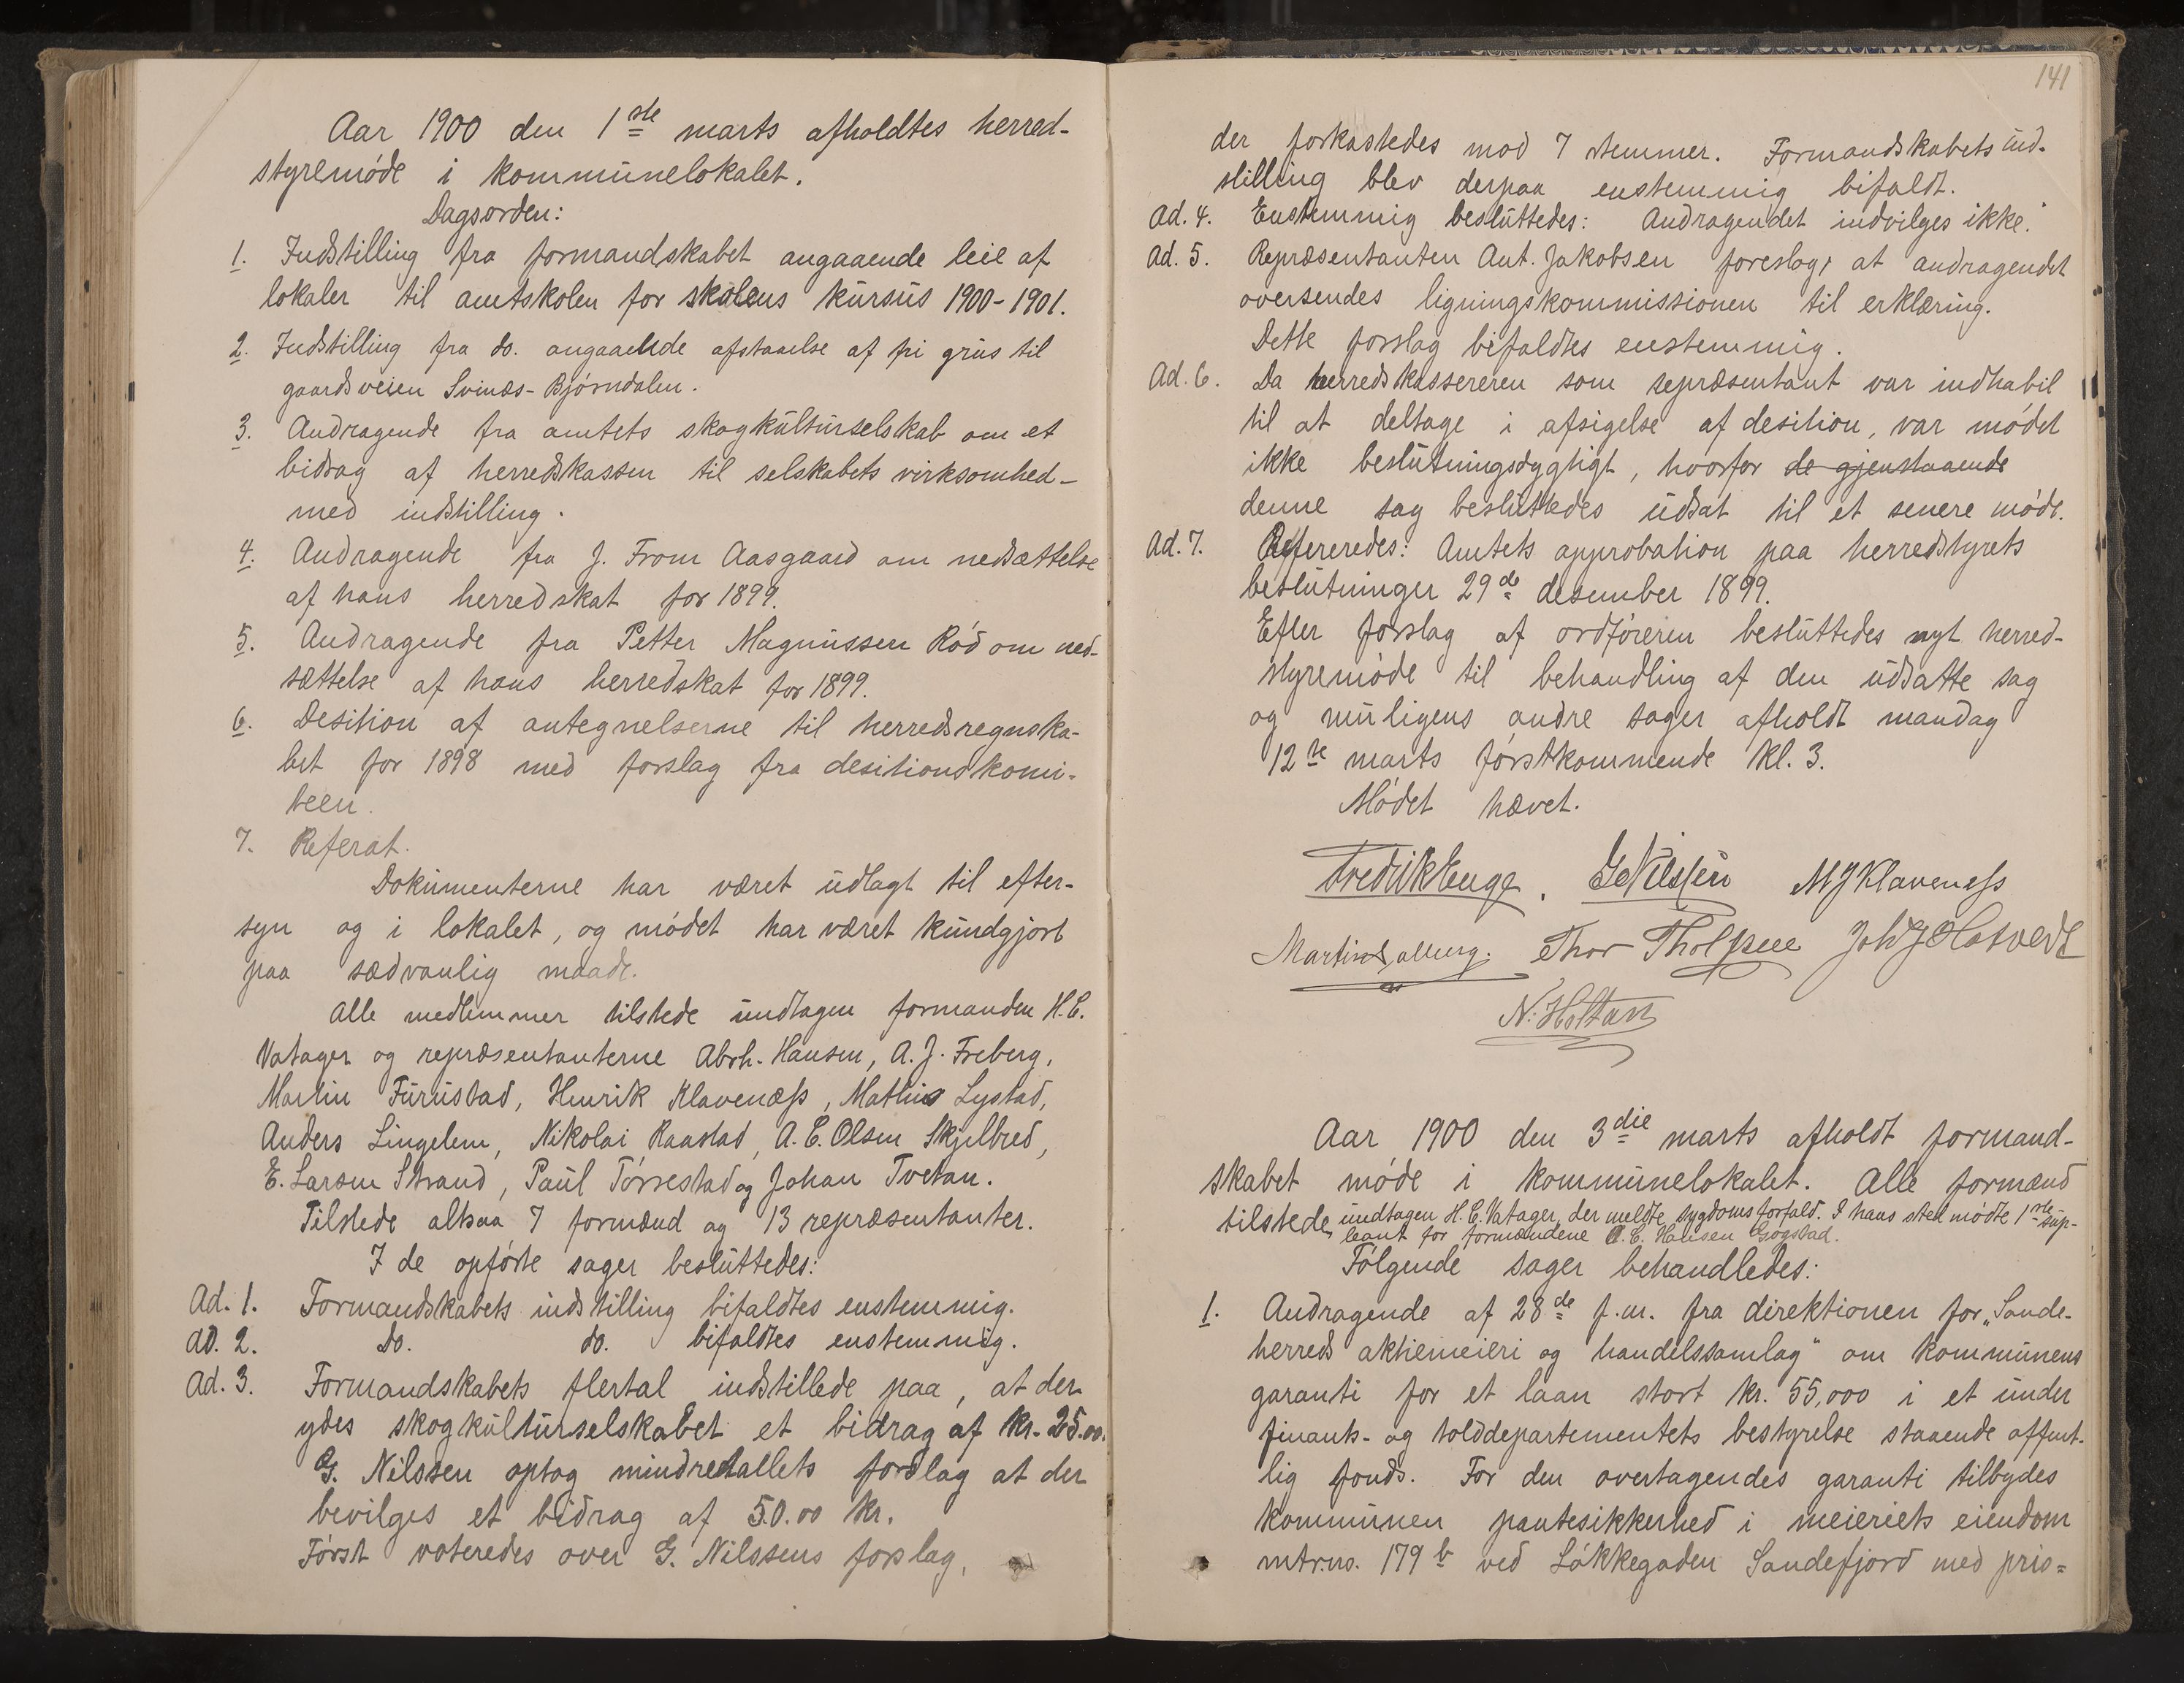 Aar 1900 den 1ste marts afholdtes herred-
styremøde i kommunelokalet.
Dagsorden:
1. Indstilling fra formandskabet angaaende leie af
lokaler til amtskolen for skolens kursus 1900-1901.
2. Indstilling fra do. angaaende afstaaelse af fri grus til
gaardsveien Svinæs-Bjørndalen.
3. Andragende fra amtets skogkulturselskab om et
bidrag af herredskassen til selskabets virksomhed -
med indstilling.
4. Andragende fra J. From Aasgaard om nedsættelse
af hans herredskat for 1899.
5. Andragende fra Petter Magnussen Rød om ned-
sættelse af hans herredskat for 1899.
6. Desition af antegnelserne til herredsregnska-
bet for 1898 med forslag fra desitionskomi-
teen.
7. Referat.
Dokumenterne har været udlagt til efter-
syn og i lokalet, og mødet har været kundgjort
paa sædvanlig maade.
Alle medlemmer tilstede undtagen formanden H.C.
Vatager og repræsentanterne Abrh. Hansen, A.J. Freberg,
Martin Furustad, Henrik Klavenæss, Mathis Lystad,
Anders Lingelem, Nikolai Raastad, A.C. Olsen Skjelbred,
E. Larsen Strand, Paul Tørrestad og Johan Tvetan.
Tilstede altsaa 7 formænd og 13 repræsentanter.
I de opførte sager besluttedes:
Ad. 1. Formandskabets indstilling bifaldtes enstemmig.
Ad. 2. do. do. bifaldtes enstemmig.
Ad. 3. Formandskabets flertal indstillede paa, at der
ydes skogkulturselskabet et bidrag af kr. 25.00.
G. Nilssen optog mindretallets forslag at der
bevilges et bidrag af 50.00 kr.
Først voteredes over G. Nilssens forslag,
141
der forkastedes mod 7 stemmer. Formandskabets ind-
stilling blev derpaa enstemmig bifaldt.
Ad. 4. Enstemmig besluttedes: Andragendet indvilges ikke."
Ad. 5. Repræsentanten Ant. Jakobsen foreslog, at andragendet
oversendes ligningskommissionen til erklæring.
Dette forslag bifaldtes enstemmig.
Ad. 6. Da herredskassereren som repræsentant var indhabil
til at deltage i afsigelse af desition, var mødet
ikke beslutningsdygtigt, hvorfor de gjenstaaende
denne sag besluttedes udsat til et senere møde.
Ad. 7. Refereredes: Amtets approbation paa herredstyrets
beslutninger 29de desember 1899.
Efter forslag af ordføreren besluttedes nyt herred-
styremøde til behandling af den udsatte sag
og muligens andre sager afholdt mandag
12te marts førstkommende kl. 3.
Mødet hævet.
Fredrik Enge. G Nilssen MJ Klaveness
Martin Dalberg. Thor
N. Holtan
Aar 1900 den 3die marts afholdt formand-
skabet møde i kommunelokalet. Alle formænd
tilstede, undtagen H.C. Vatager, der meldte sygdoms forfald. I hans sted mødte 1ste sup-
leant for formændene A.C. Hansen Gogstad.
Følgende sager behandledes:
1. Andragende af 28de f.m. fra direktionen for „Sande-
herreds aktiemeieri og handelssamlag" om kommunens
garanti for et laan stort kr. 55,000 i et under
finants- og tolddepartementets bestyrelse staaende offent-
lig fonds. For den overtagendes garanti tilbydes
kommunen pantesikkerhed i meieriets eiendom
mtr.no. 179b ved Løkkegaden Sandefjord med prio=